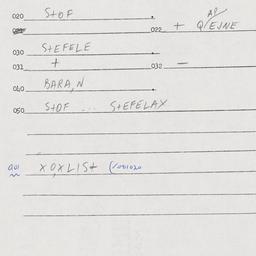 020 StOF
022 + Q/EJNE
030 StEFELE
031 + 032 -
040 BARA,N
050 StOF ... StEFELAX
901 XOXLISt